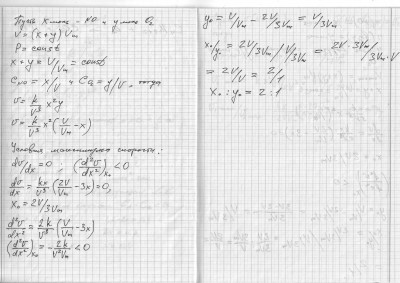 Пусть x моль - NO и y моль O₂
V = (x + y) Vm
P = const
x + y = V/Vm = const
C_NO = x/V и C_O₂ = y/V, тогда
v = k/V³ x²y
v = k/V³ x² (V/Vm - x)
Условия максимальной скорости:
dv/dx = 0 ; (d²v/dx²)x₀ < 0
dv/dx = kx/V³ (2V/Vm - 3x) = 0,
x₀ = 2V/3Vm
d²v/dx² = 2k/V³ (V/Vm - 3x)
(d²v/dx²)x₀ = - 2k/V²Vm < 0
y₀ = V/Vm - 2V/3Vm = V/3Vm
x₀/y₀ = 2V/3Vm / V/3Vm = 2V·3Vm/3Vm·V =
= 2V/V = 2/1
x₀ : y₀ = 2 : 1